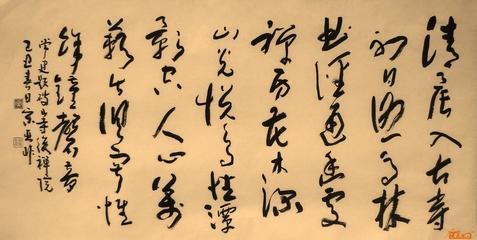 清晨入古寺
初日照高林
曲徑通幽處
禪房花木深
山光悦鳥性潭
影空人心萬
籟此俱寂惟
餘鐘磬音
常建題破山寺後禪院
己丑春日